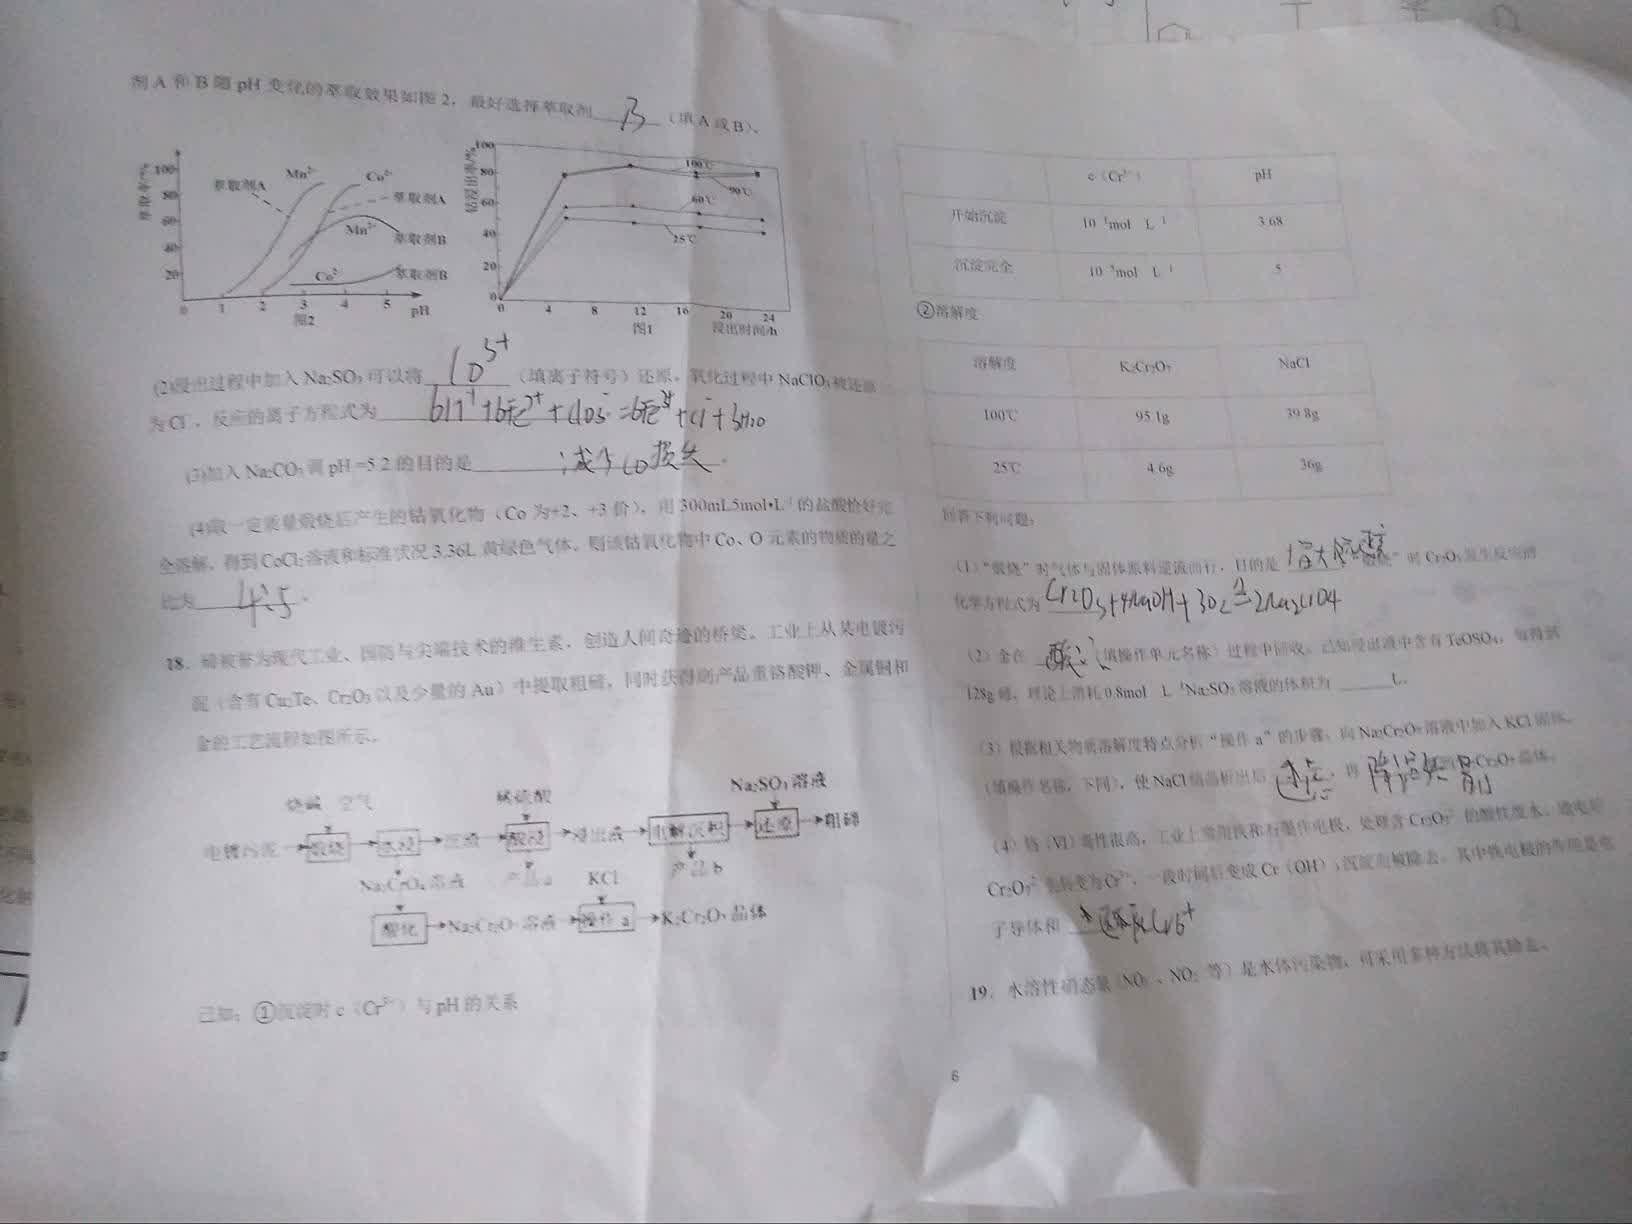 剂A和B随pH变化的萃取效果如图2，最好选择萃取剂 B （填A或B）。
萃取率/%
100
80
60
40
20
0 1 2 3 4 5 pH
萃取剂A
Mn²⁺
Co²⁺
萃取剂A
Mn²⁺
萃取剂B
Co²⁺
萃取剂B
图2
钴浸出率/%
100
80
60
40
20
0
0 4 8 12 16 20 24
100℃
90℃
60℃
25℃
图1 浸出时间/h
(2)浸出过程中加入Na₂SO₃可以将（填离子符号）还原，氧化过程中NaClO₃被还原
为Cl⁻，反应的离子方程式为 6H⁺+6Fe²⁺+ClO₃⁻=6Fe³⁺+Cl⁻+3H₂O
(3)加入Na₂CO₃调pH=5.2的目的是 减少CO损失。
(4)取一定质量煅烧后产生的钴氧化物（Co为+2、+3价），用300mL5mol•L⁻¹的盐酸恰好完
全溶解，得到CoCl₂溶液和标准状况3.36L黄绿色气体。则该钴氧化物中Co、O元素的物质的量之
比为 4:5 。
18．碲被誉为现代工业、国防与尖端技术的维生素，创造人间奇迹的桥梁。工业上从某电镀污
泥（含有Cu₂Te、Cr₂O₃以及少量的Au）中提取粗碲，同时获得副产品重铬酸钾、金属铜和
金的工艺流程如图所示。
烧碱 空气 稀硫酸 Na₂SO₃溶液
电镀污泥 煅烧 水浸 沉渣 酸浸 浸出液 电解沉积 还原 粗碲
Na₂CrO₄溶液 产品a KCl 产品b
酸化 Na₂Cr₂O₇溶液 操作a K₂Cr₂O₇晶体
已知：①沉淀时c（Cr³⁺）与pH的关系
c（Cr³⁺） pH
开始沉淀 mol L⁻¹ 3.68
沉淀完全 10⁻⁵mol L⁻¹ 5
②溶解度
溶解度 K₂Cr₂O₇ NaCl
100℃ 95.1g 39.8g
25℃ 4.6g 36g
回答下列问题：
（1）“煅烧”时气体与固体原料逆流而行，目的是 增大 时Cr₂O₃发生反应的
化学方程式为 Cr₂O₃+4NaOH+3O₂=2Na₂CrO₄
（2）金在 酸浸（填操作单元名称）过程中回收。已知浸出液中含有TeOSO₄，每得到
128g碲，理论上消耗0.8mol L⁻¹Na₂SO₃溶液的体积为 L。
（3）根据相关物质溶解度特点分析“操作a”的步骤：向Na₂Cr₂O₇溶液中加入KCl固体，
（填操作名称，下同），使NaCl晶体析出后，再 Cr₂O₇晶体。
（4）铬（VI）毒性很高，工业上常用铁和石墨作电极，处理含Cr₂O₇²⁻的酸性废水，通电后
Cr₂O₇²⁻先转变为Cr³⁺，一段时间后变成Cr（OH）₃沉淀而被除去。其中铁电极的作用是电
子导体和
19．水溶性硝态氮（NO₃⁻、NO₂⁻等）是水体污染物，可采用多种方法将其除去。
6